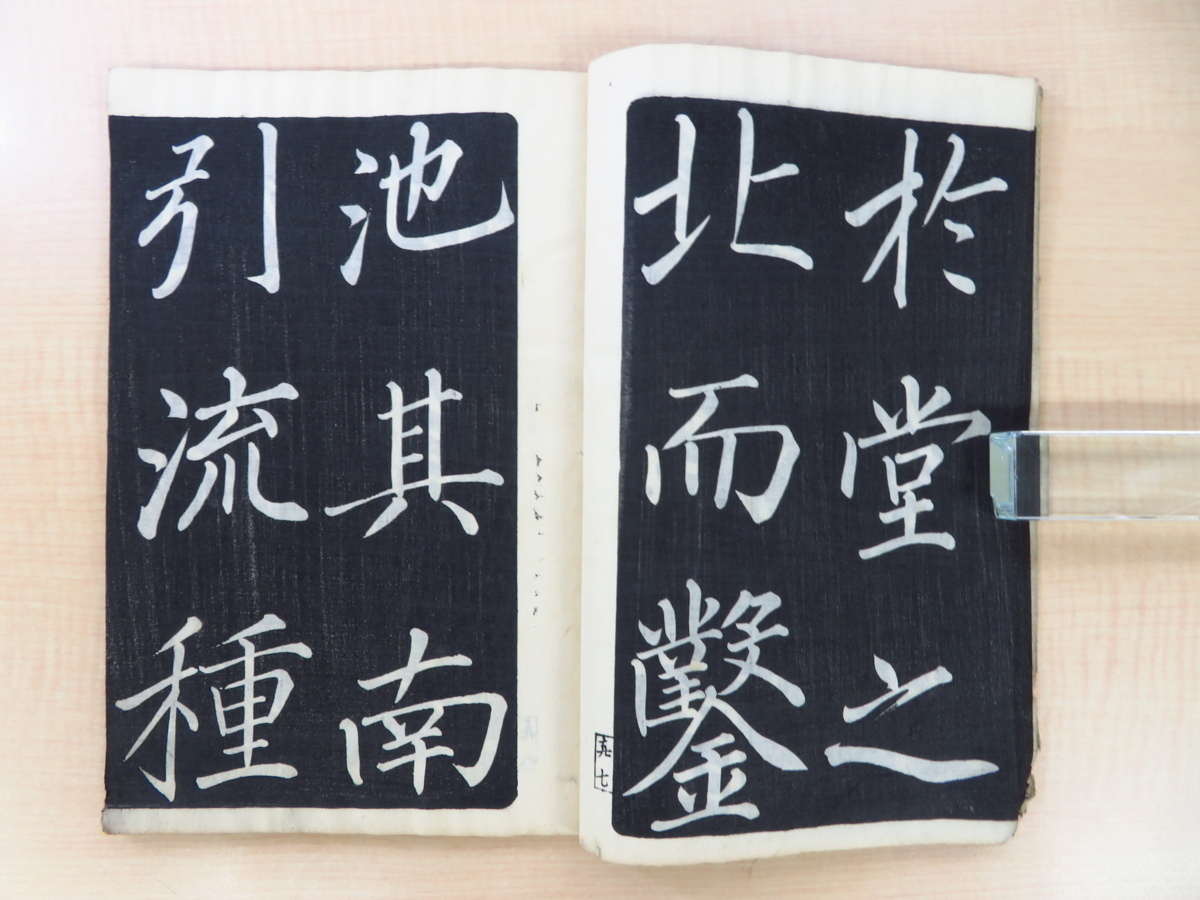 於堂之
北而鑿
池其南
引流種